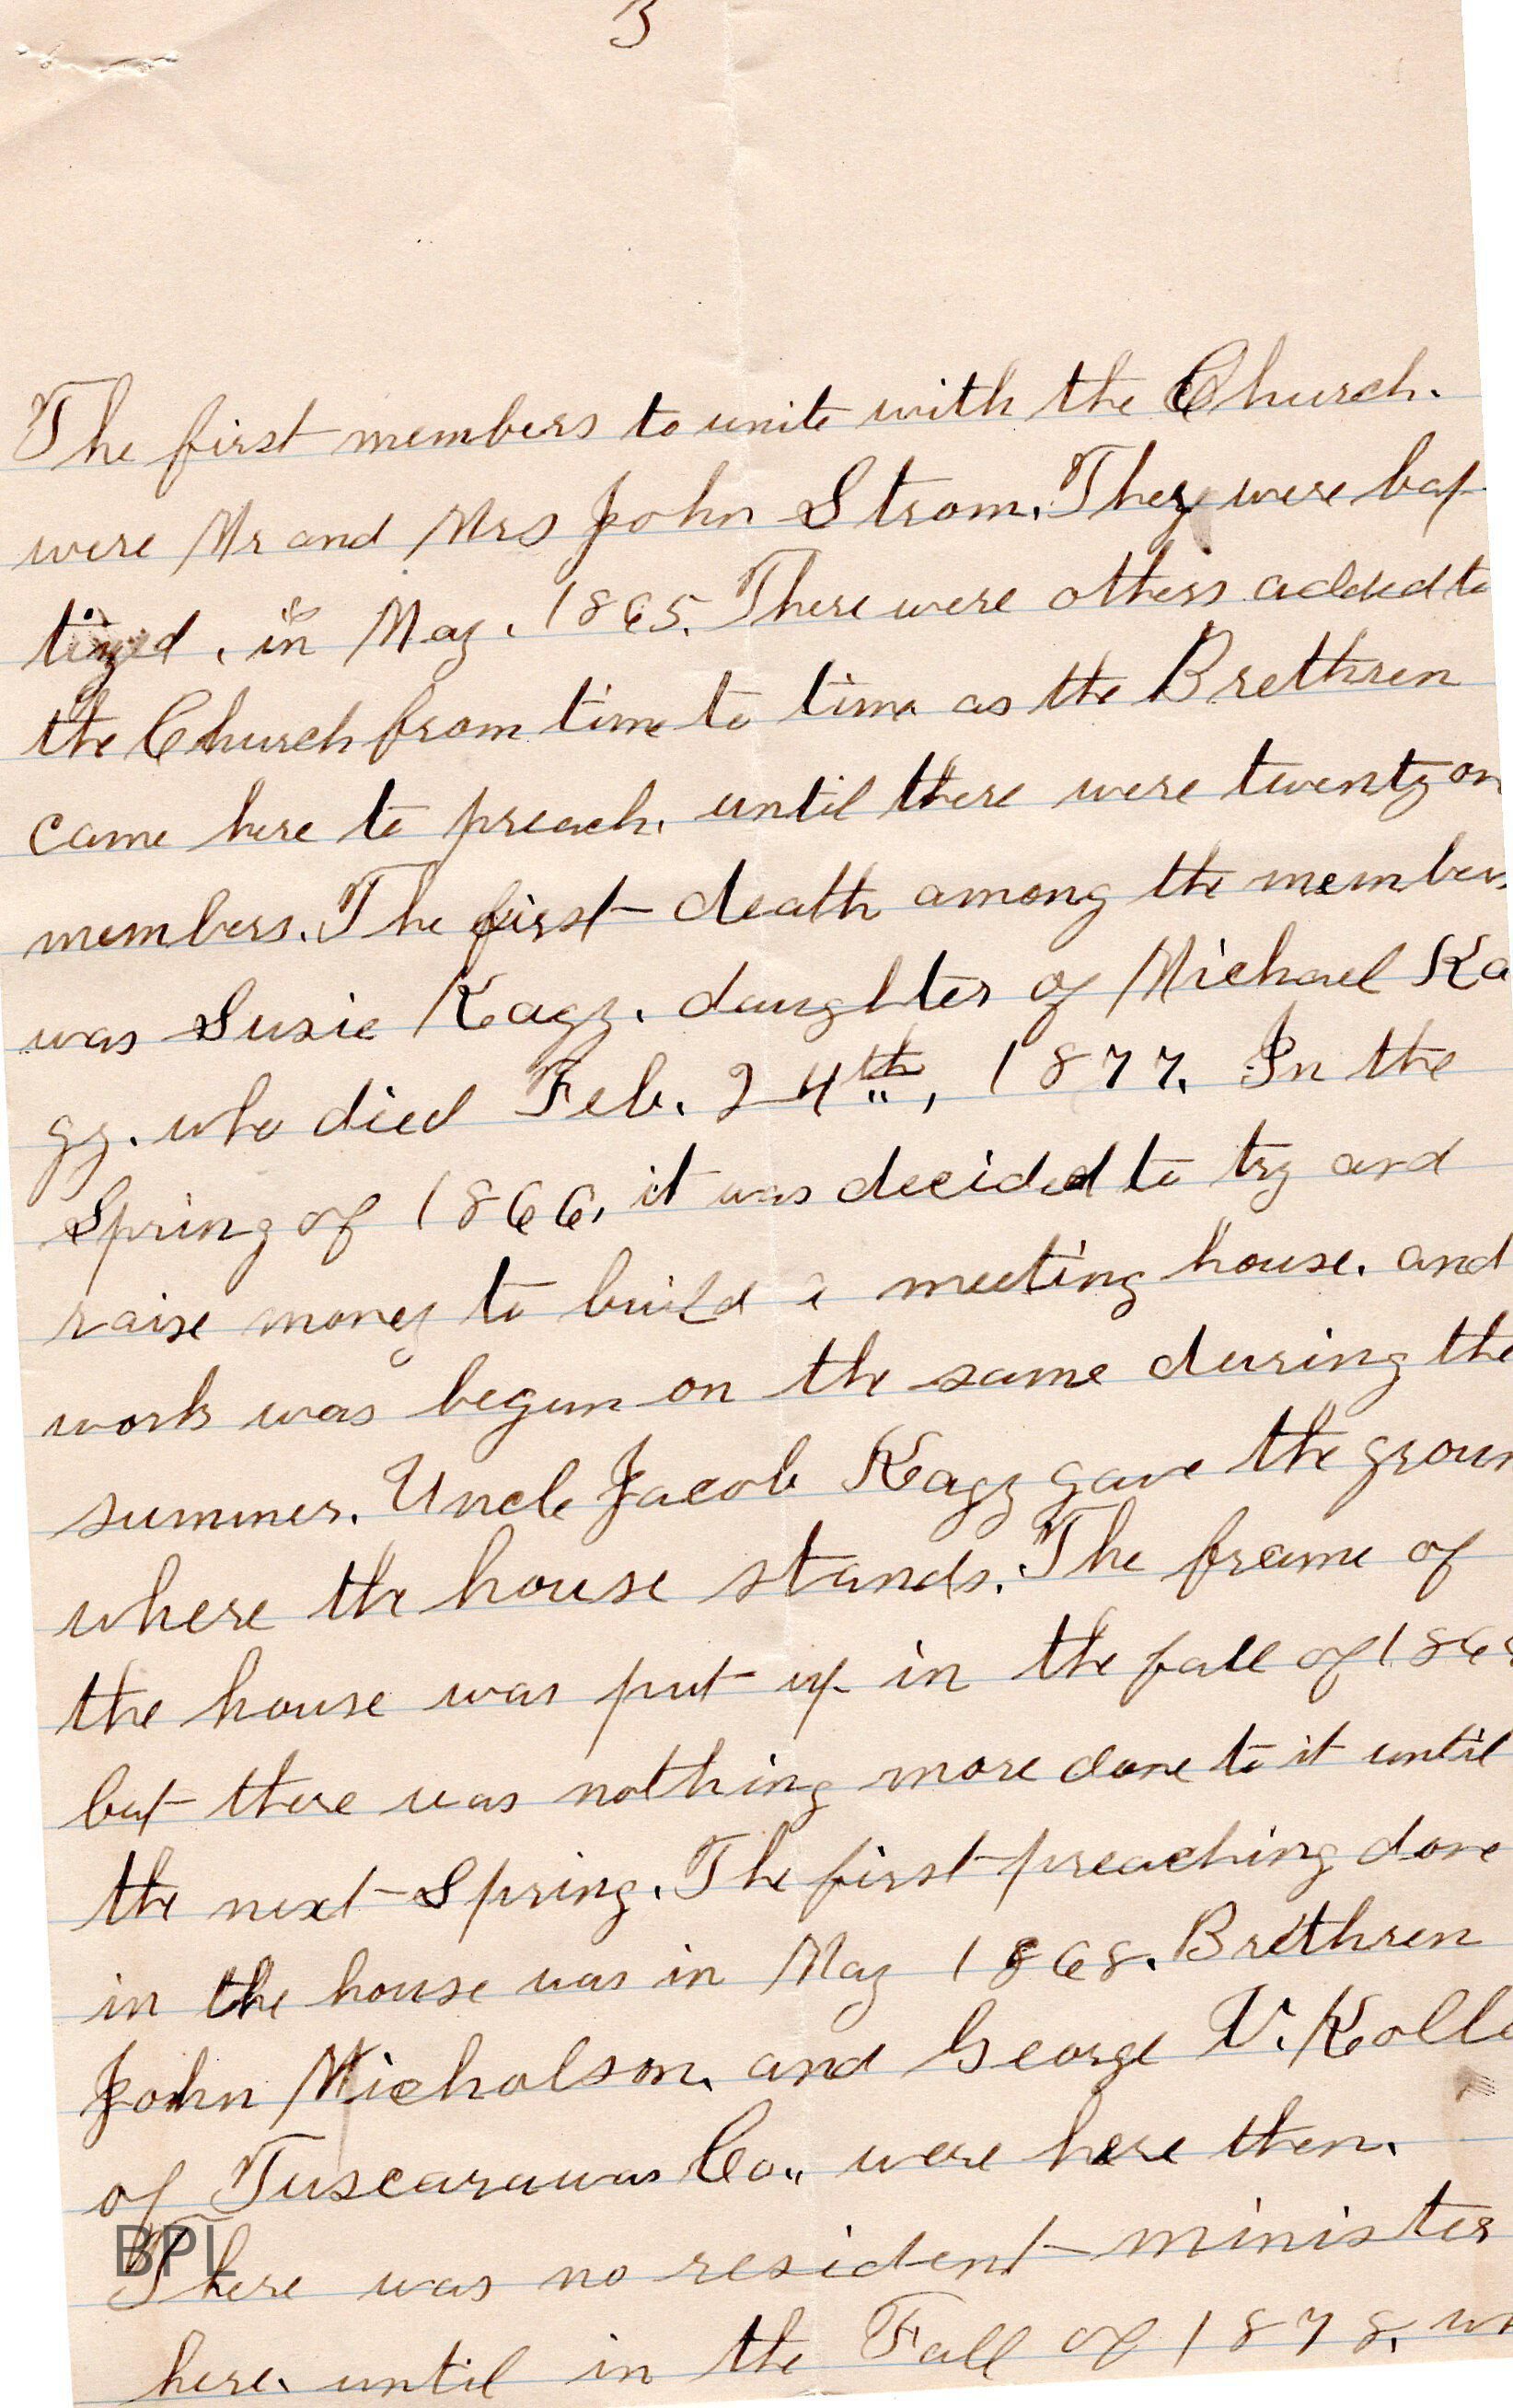 3
The first members to unite with the Church.
were Mr and Mrs John Strom. They were bap-
tized, in May. 1865. There were others added to
the Church from time to time as the Brethren
came here to preach. until there were twenty on
members. The first death among the members
was Susie Kagy. daughter of Michael Ka
gy. who died Feb. 24th, 1877. In the
Spring of 1866, it was decided to try and
raise money to build a meeting house. and
work was begun on the same during the
summer. Uncle Jacob Kagy gave the groun
where the house stands. The frame of
the house was put up in the fall of
but there was nothing more done to it until
the next Spring. The first preaching done
in the house was in May 1868. Brethren
John Nicholson, and George V. Kolla
of Tuscarawas Co., were here then.
There was no resident minister
here. until in the Fall of 1878, wh
BPL